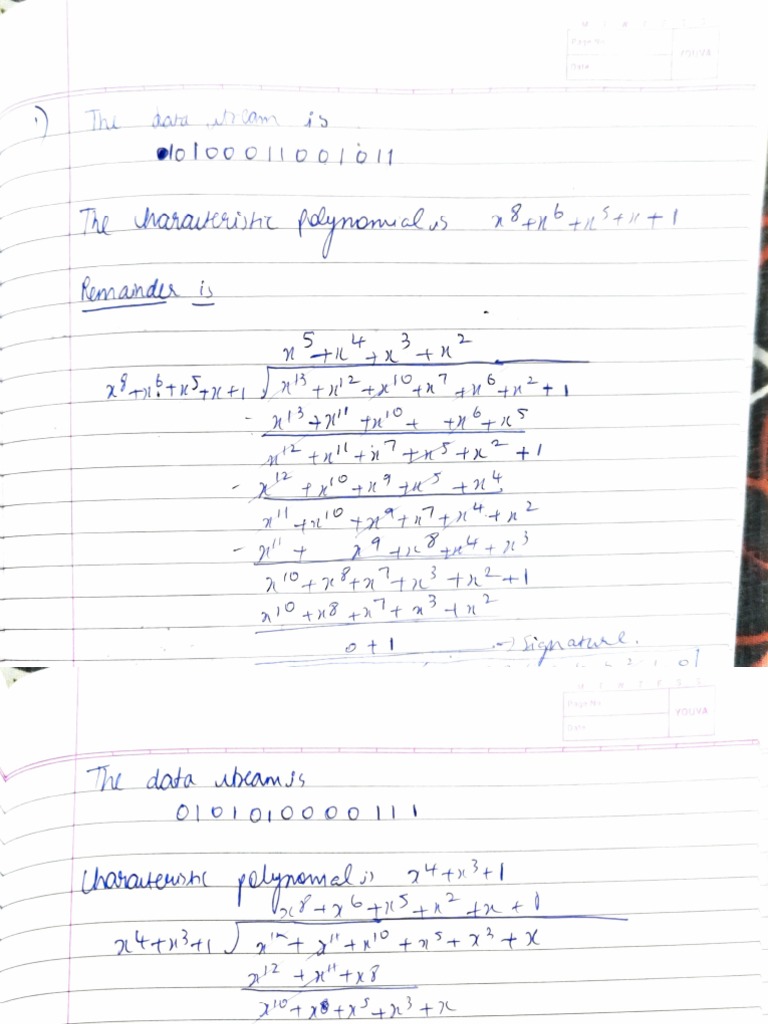 Page No.
Date
YOUVA
1) The data stream is
010100011001011
The characteristic polynomial is x⁸+x⁶+x⁵+x+1
Remainder is
x⁵+x⁴+x³+x²
x⁸+x⁶+x⁵+x+1 ) x¹³+x¹²+x¹⁰+x⁷+x⁶+x²+1
- x¹³+x¹¹+x¹⁰+ +x⁶+x⁵
x¹²+x¹¹+x⁷+x⁵+x²+1
- x¹²+x¹⁰+x⁹+x⁵+x⁴
x¹¹+x¹⁰+x⁹+x⁷+x⁴+x²
- x¹¹+ x⁹+x⁸+x⁴+x³
x¹⁰+x⁸+x⁷+x³+x²+1
x¹⁰+x⁸+x⁷+x³+x²
0+1 → Signature.
Page No.
Date
YOUVA
The data stream is
0101010000111
Characteristic polynomial is x⁴+x³+1
x⁸+x⁶+x⁵+x²+x+1
x⁴+x³+1 ) x¹²+x¹¹+x¹⁰+x⁵+x³+x
x¹²+x¹¹+x⁸
x¹⁰+x⁸+x⁵+x³+x